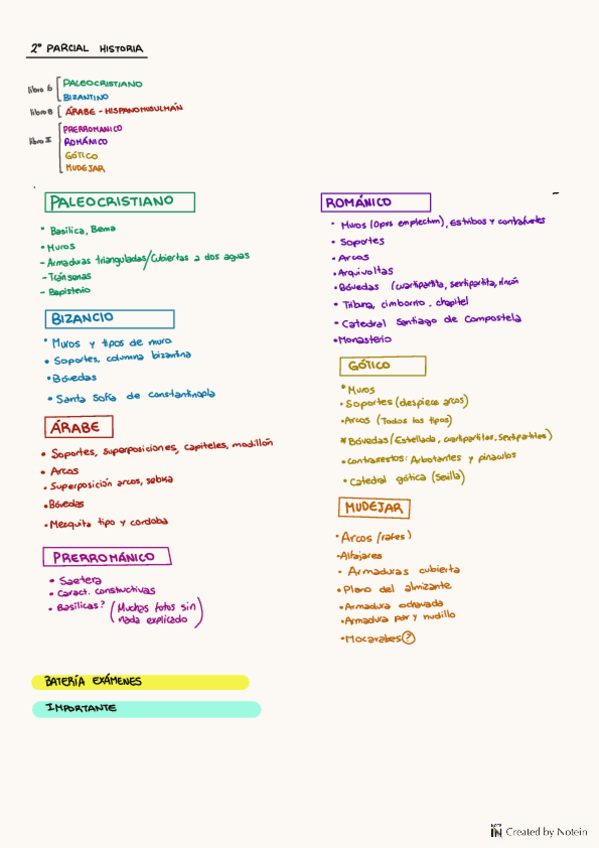 2º PARCIAL HISTORIA
libro 6
PALEOCRISTIANO
BIZANTINO
libro 8
ÁRABE - HISPANOMUSULMÁN
libro I
PRERROMANICO
ROMÁNICO
GÓTICO
MUDEJAR
PALEOCRISTIANO
• Basilica, Bema
• Muros
- Armaduras trianguladas/Cubiertas a dos aguas
- Tránsenas
- Bapisterio
BIZANCIO
• Muros y tipos de muro
• Soportes, columna bizantina
• Bóvedas
• Santa Sofía de constantinopla
ÁRABE
• Soportes, superposiciones, capiteles, modillón
• Arcos
• Superposición arcos, sebka
• Bóvedas
• Mezquita tipo y cordoba
PRERROMÁNICO
• Saetera
• Caract. constructivas
• Basílicas? (Muchas fotos sin
nada explicado)
ROMÁNICO
• Muros (Opus emplectum), Estribos y contrafuertes
• Soportes
• Arcos
• Arquivoltas
• Bóvedas (cuartipartita, sextipartita, rincón
• Tribuna, cimborrio, chapitel
• Catedral Santiago de Compostela
• Monasterio
GÓTICO
• Muros
• Soportes (despiece arcos)
• Arcos (Todos los tipos)
* Bóvedas (Estellada, cuartipartitas, Sextipartitas)
• contrarrestos: Arbotantes y pináculos
• Catedral gótica (Sevilla)
MUDEJAR
• Arcos (rafes)
• Alfajares
• Armaduras cubierta
• Plano del almizante
• Armadura ochavada
• Armadura par y nudillo
• Mocarabes ?
BATERÍA EXÁMENES
IMPORTANTE
IN Created by Notein